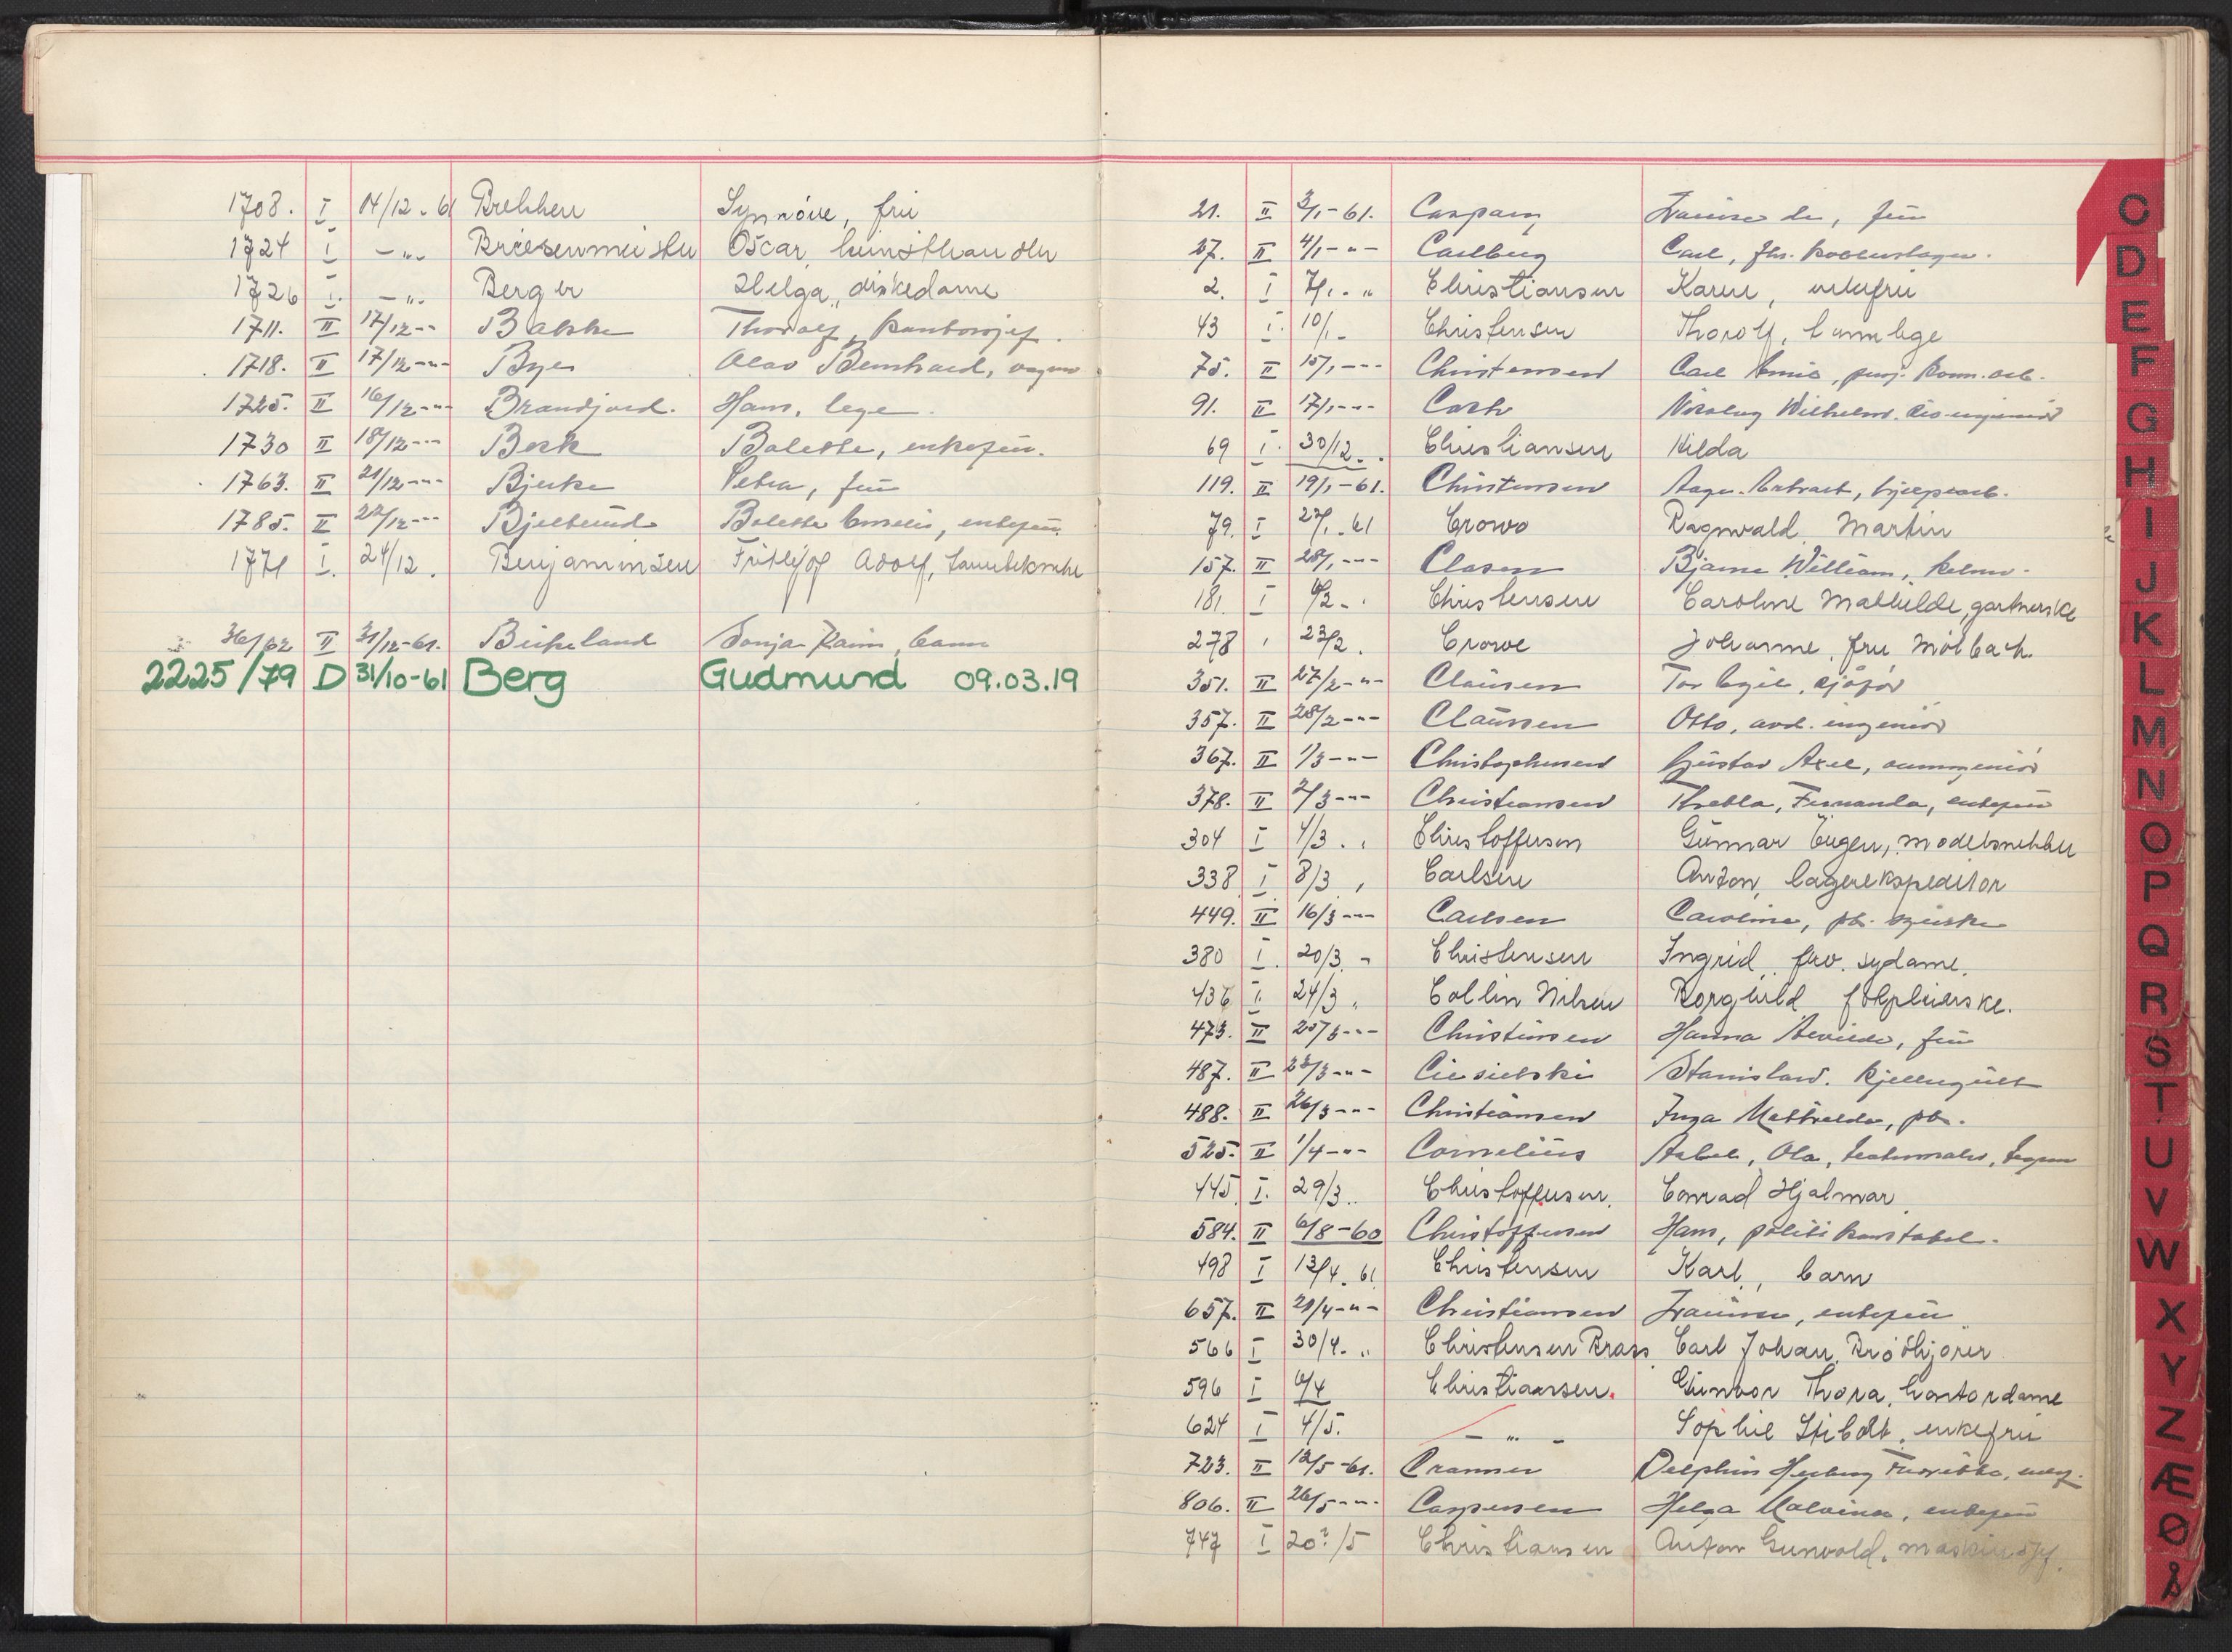 1708. I 14/12-61 Brekken Synnöve, frü
1724 I -"- Briesenmeister Oscar, kunsthandler
1726 I. -"- Berger Helga, diskedame
1711. II 17/12-"- Bakke Thoralf, kontorsjef.
1718. II 17/12-"- Bye Olav Bernhard,
1725. II 16/12-"- Brandjord. Hans, lege.
1730 II 18/12-"- Berk Bolette, enkefrü.
1763. II 21/12-"- Bjerke Petra, frü
1785. II 22/12-"- Bjelbünd Bolette Emelie, enkefrü.
1771 I. 24/12. Benjaminsen Fritljof Adolf,
36/62 II 31/12-61. Birkeland Sonja Karin, barn
2225/79 D 31/10-61 Berg Gudmund 09.03.19
21. II 3/1-61. Caspary frü
27. II 4/1-"- Carlberg Carl, fhv.
2. I 7/1. " Christiansen Karen, enkefrü
43 I. 10/1- Christensen Thorolf, tannlege
75. II 15/1-"- Christensen Carl Emil, pensj. komm.arb.
91. II 17/1-"- Nicolay Wilhelm.
69 I. 30/12. Christiansen Hilda
119. II 19/1-61. Christensen Aage. hjelpearb.
79. I 27/1.61 Crowo Ragnvald Martin
157. II 28/1-"- Clasen Bjarne William, kelner.
181. I 6/2-. Christensen Caroline Mathilde, gartnerske
278 ' 23/2. Crowe Johanne, fru Mölbach.
351. II 27/2-"- Clausen Tor Egil, sjåfør
357. II 28/2-"- Claüssen Otto, avd. ingeniør
367. II 1/3-"- Christophersen Güstav Axel,
378. II 2/3-"- Christiansen Thekla, Fernanda, enkefrü
304 I 4/3. , Christoffersen Gunnar Eugen, modellsnekker
338 I 8/3 , Carlsen Anton, lagerekspeditör
449. II 16/3-"- Carlsen Caroline, pb.
380 I. 20/3. - Christensen Ingrid, fhv. sydame.
436 I. 24/3. Collin Nilsen Borghild
473. II 25/3-"- Christensen Hanna Alvilde, frü
487. II 23/3-"- Ciesielski Stanislaw.
488. II 26/3-"- Christiansen Inga Mathilde, pb.
525. II 1/4-"- Cornelius Ola, teatermaler,
445 I. 29/3.. Christoffersen. Conrad Hjalmar.
584. II 6/8-60 Christoffersen Hans, politikonstabel.
498 I 13/4.61 Christensen Karl, barn
657. II 21/4-"- enkefrü
566 I 30/4. " Christensen Brass Carl Johan.
596 I 6/4 Christiansen. Gunvor Thora, kontordame
624 I 4/5. - " - Sophie Stibolt, enkefrü
723. II 12/5-61. Cranner Delphin
806. II 26/5-"- Caspersen Helga Malvina, enkefrü
747 I 20?/5 Christiansen Anton Gunvald, maskinsjef.
C
D
E
F
G
H
I
J
K
L
M
N
O
P
Q
R
S
T
U
V
W
X
Y
Z
Æ
Ø
Å